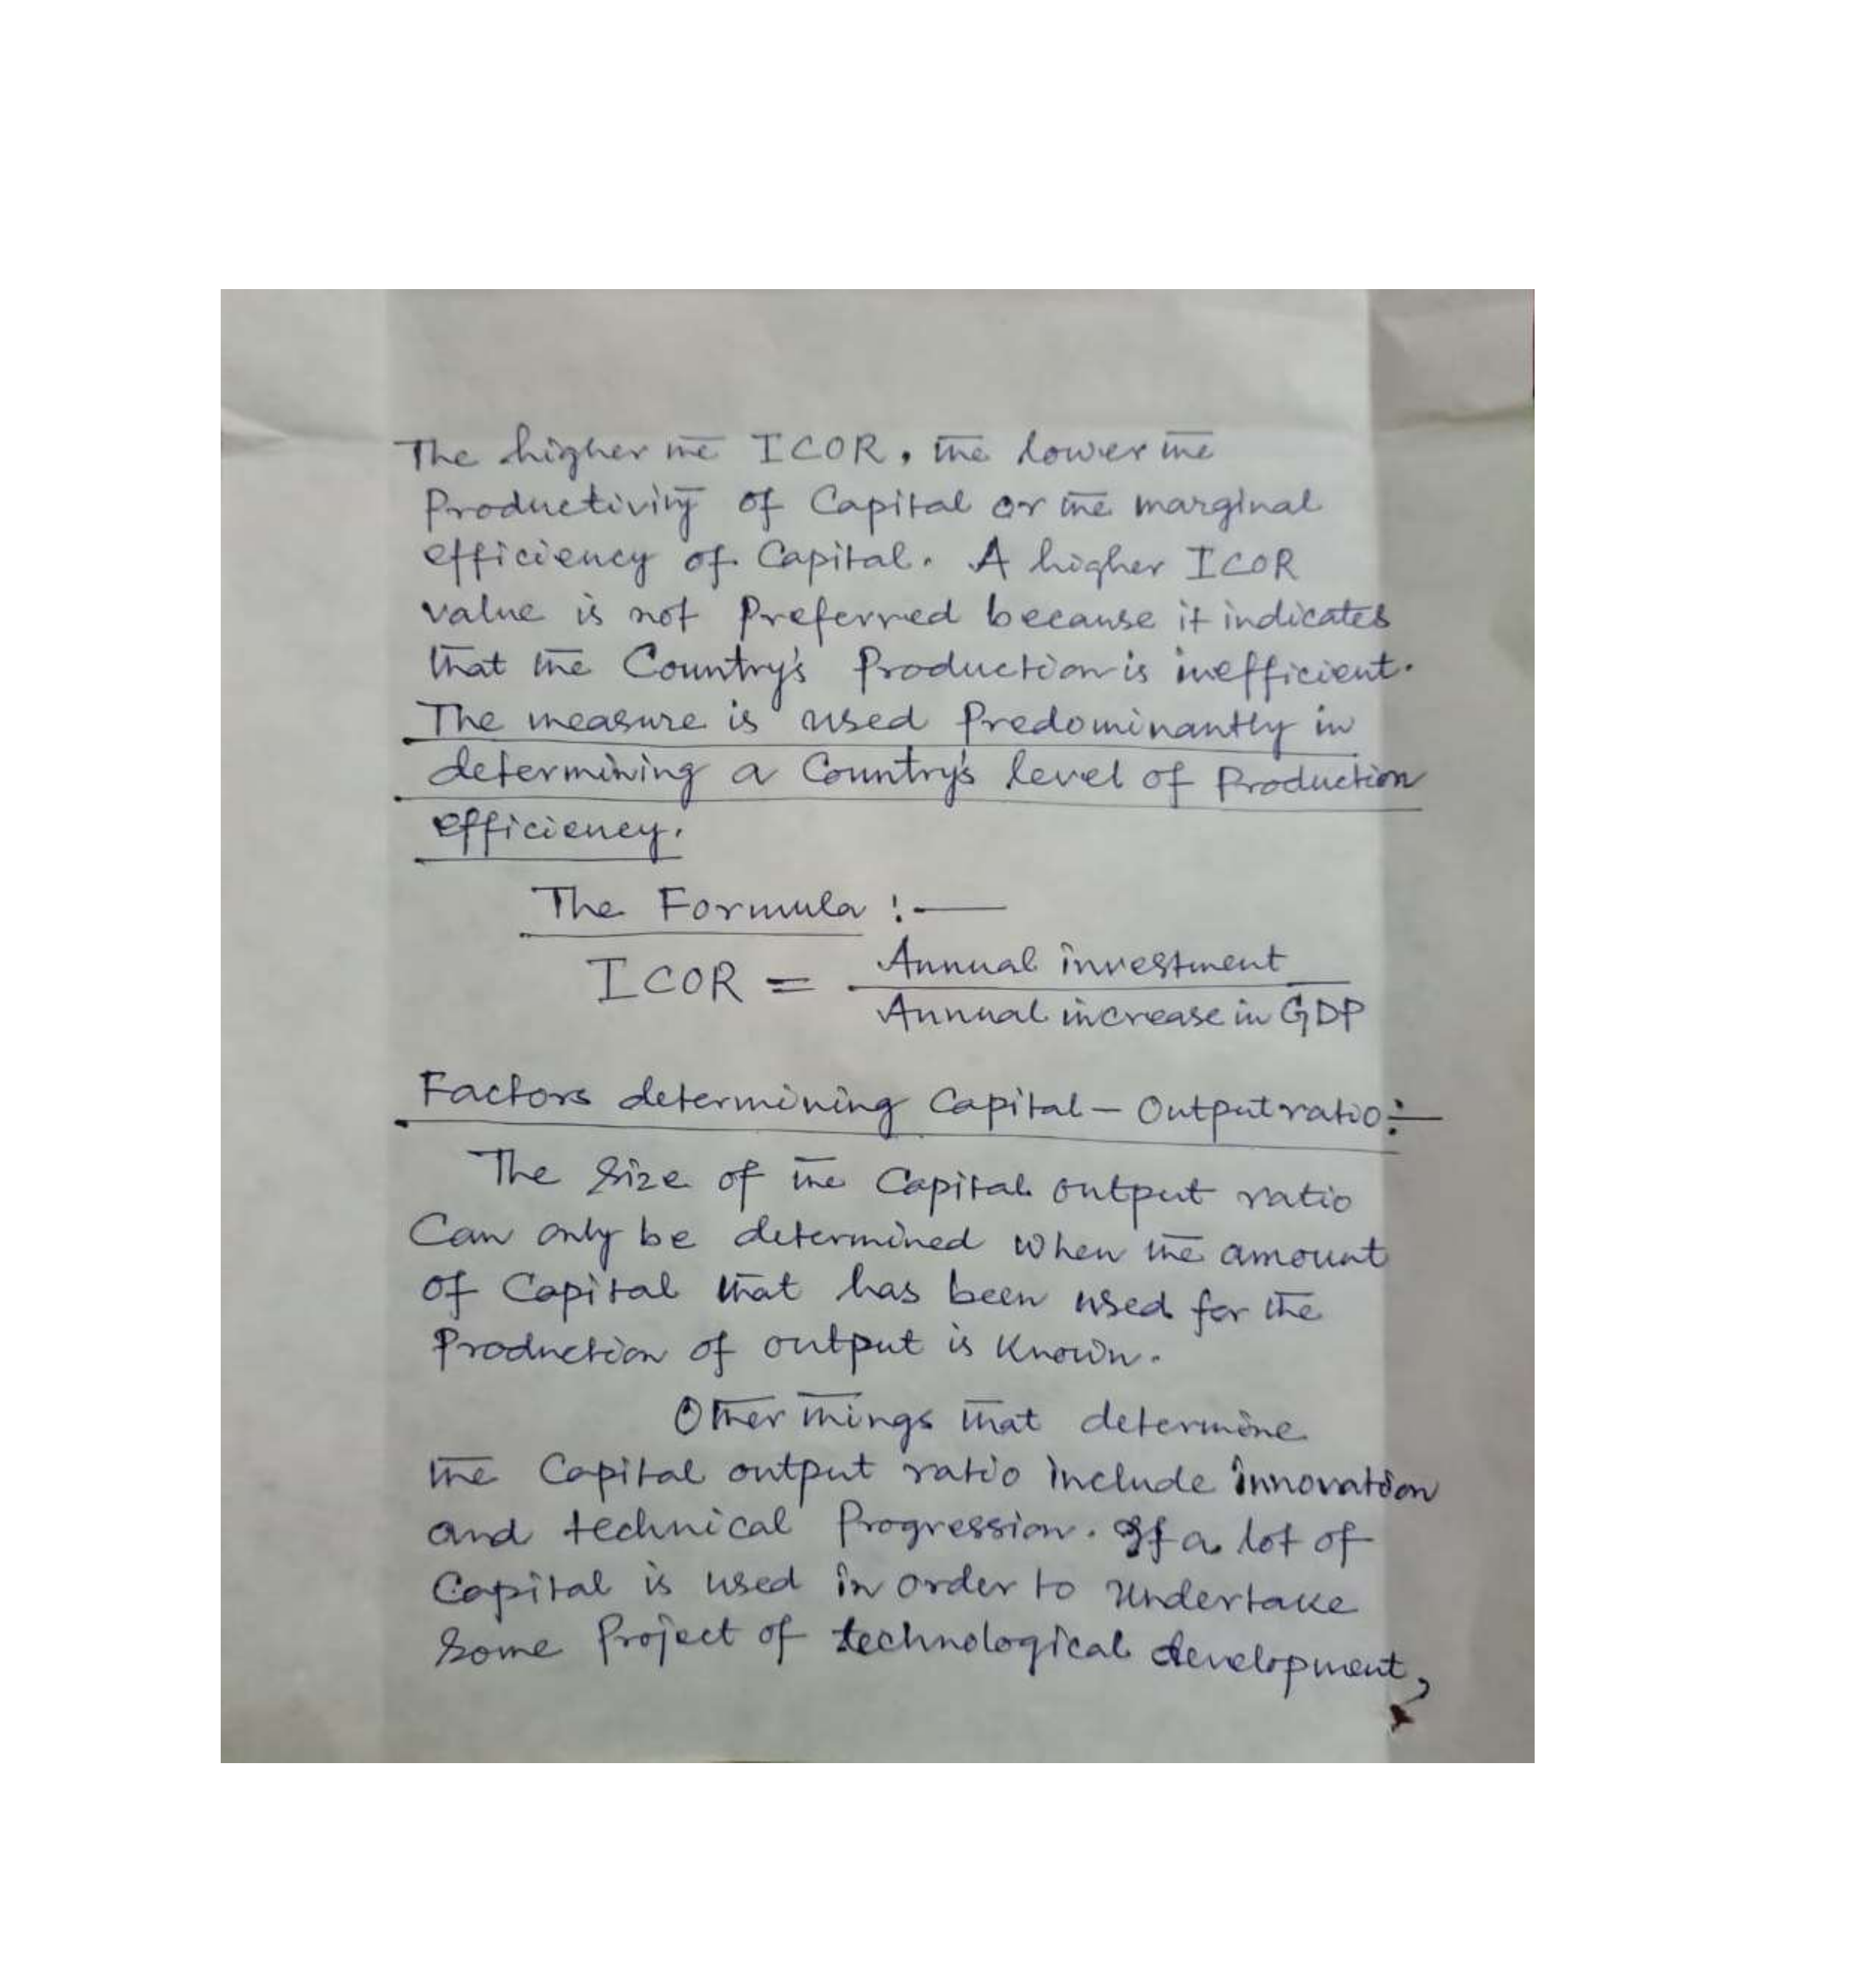 The higher the ICOR, the lower the
Productivity of Capital or the marginal
efficiency of Capital. A higher ICOR
value is not Preferred because it indicates
that the Country's Production is inefficient.
The measure is used Predominantly in
determining a Country's level of Production
efficiency.
The Formula :—
ICOR = Annual investment
Annual increase in GDP
Factors determining Capital - Output ratio:—
The Size of the Capital output ratio
Can only be determined when the amount
of Capital that has been used for the
Production of output is Known.
Other things that determine
the Capital output ratio include innovation
and technical Progression. If a lot of
Capital is used in order to undertake
Some Project of technological development,